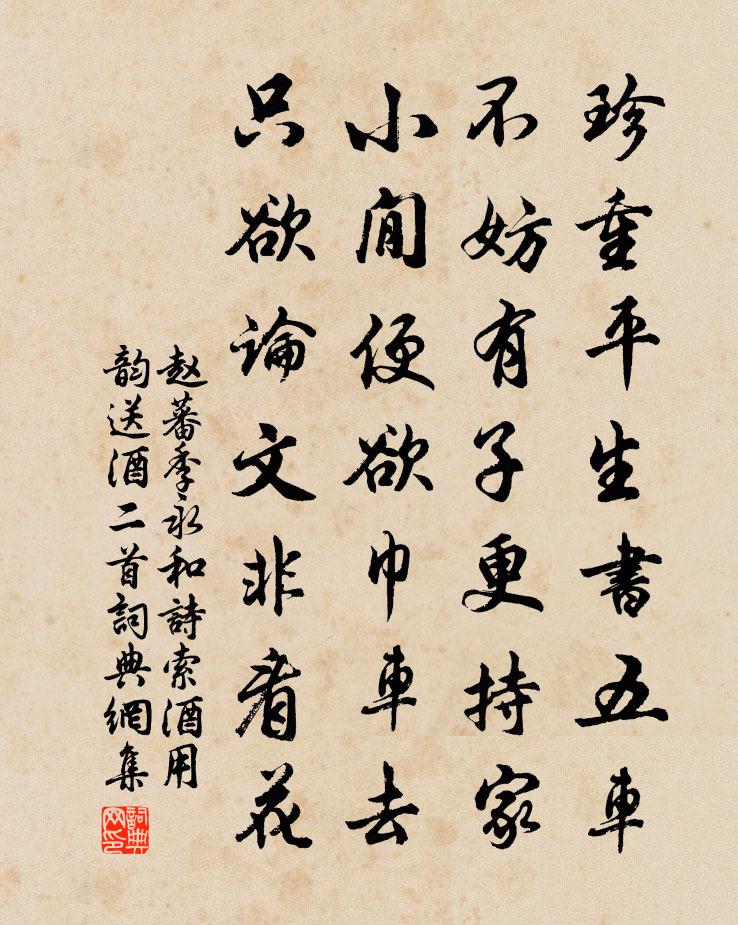 珍重平生書五車
不妨有子更持家
小閒便欲巾車去
只欲論文非看花
赵蕃季永和詩索酒用
韵送酒二首詞典網集
詞典网印